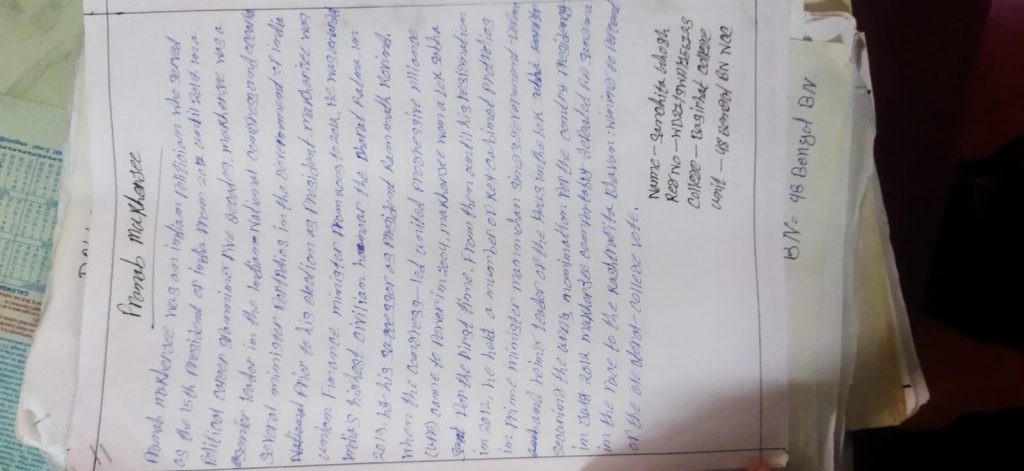 Pranab mukherjee
Pranab mukherjee was an indian Politician who served
as the 15th President of india from 2012 until 2017. in a
Political career spanning five decades, mukherjee was a
senior leader in the indian National congress and occupied
several minister Portfolios in the Government of india
Prior to his election as President, mukherjee was
union Finance minister from 2009 to 2012. He was
india's highest civilian honour the Bharat Ratna, in
2019, by his successor as president Ram nath Kovind.
when the congress-led united Progressive Alliance
(UPA) came to Power in 2004, mukherjee won a Lok sabha
seat For the first time. From then until his resignation
in 2012, he held a number of key cabinet Portfolios
in Prime minister manmohan singh's Government
and being leader of the House in the Lok sabha
securing the UPA's nomination for the country Presidency
in July 2012 mukherjee comfortably defeated P.A Sangma
in the race to the Rashtrapati Bhavan. winning 70 Percent
of the electoral-college vote.
Name - Sanchita Ghosh
College - Bagnhat college
Unit - 48 Bengal BN NCC
BN = 48 Bengal BN